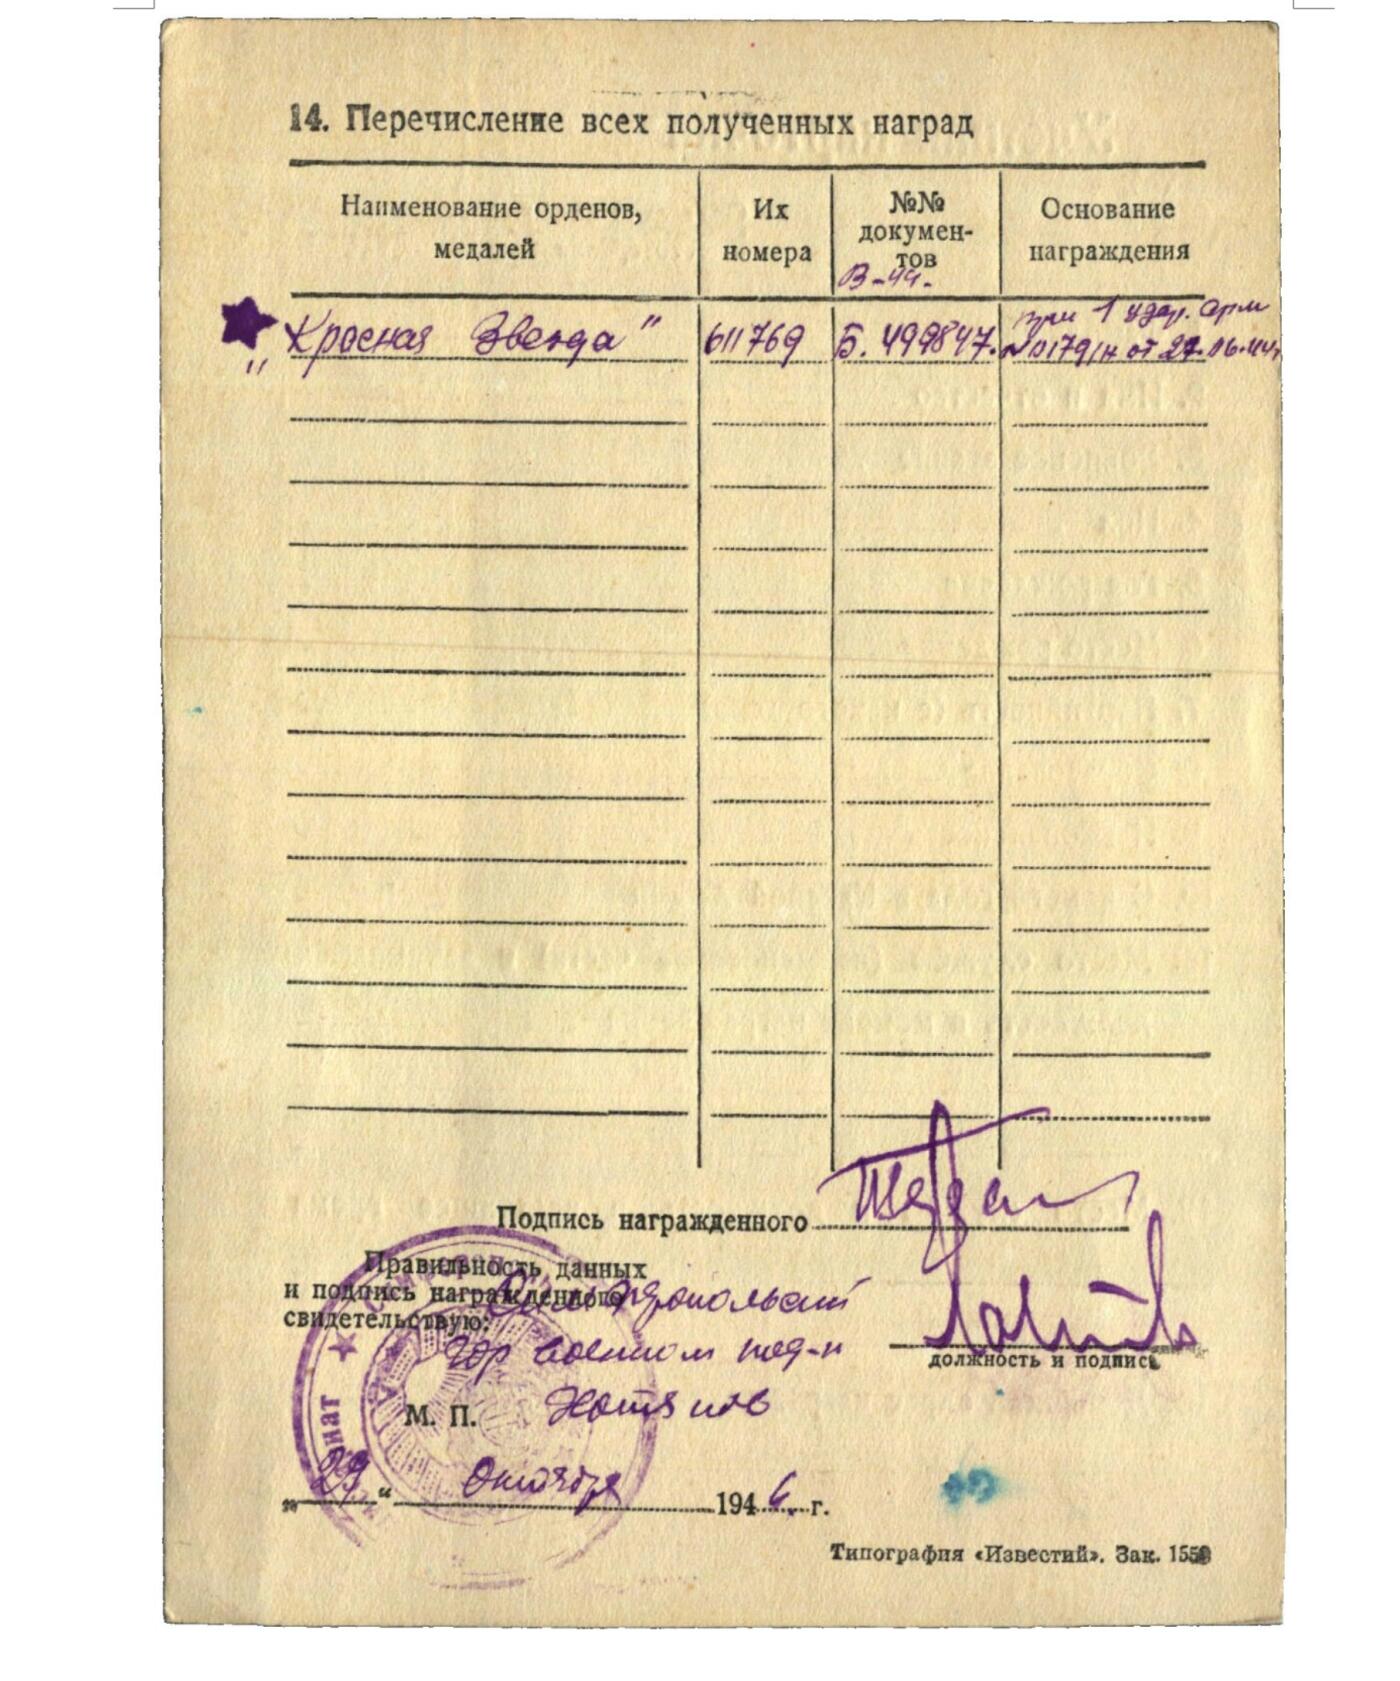 14. Перечисление всех полученных наград
Наименование орденов,
медалей
Их
номера
№№
докумен-
тов
Основание
награждения
В-44.
"Красная Звезда" 611769 Б. 499847. при 1 удар. арм
№0179/н от 27.06.44г
Подпись награжденного
Правильность данных
и подпись награжденного
свидетельствую:
Симферопольский
Гор военком
должность и подпись
М. П.
„29" Октября 1946 г.
Типография «Известий». Зак. 1559